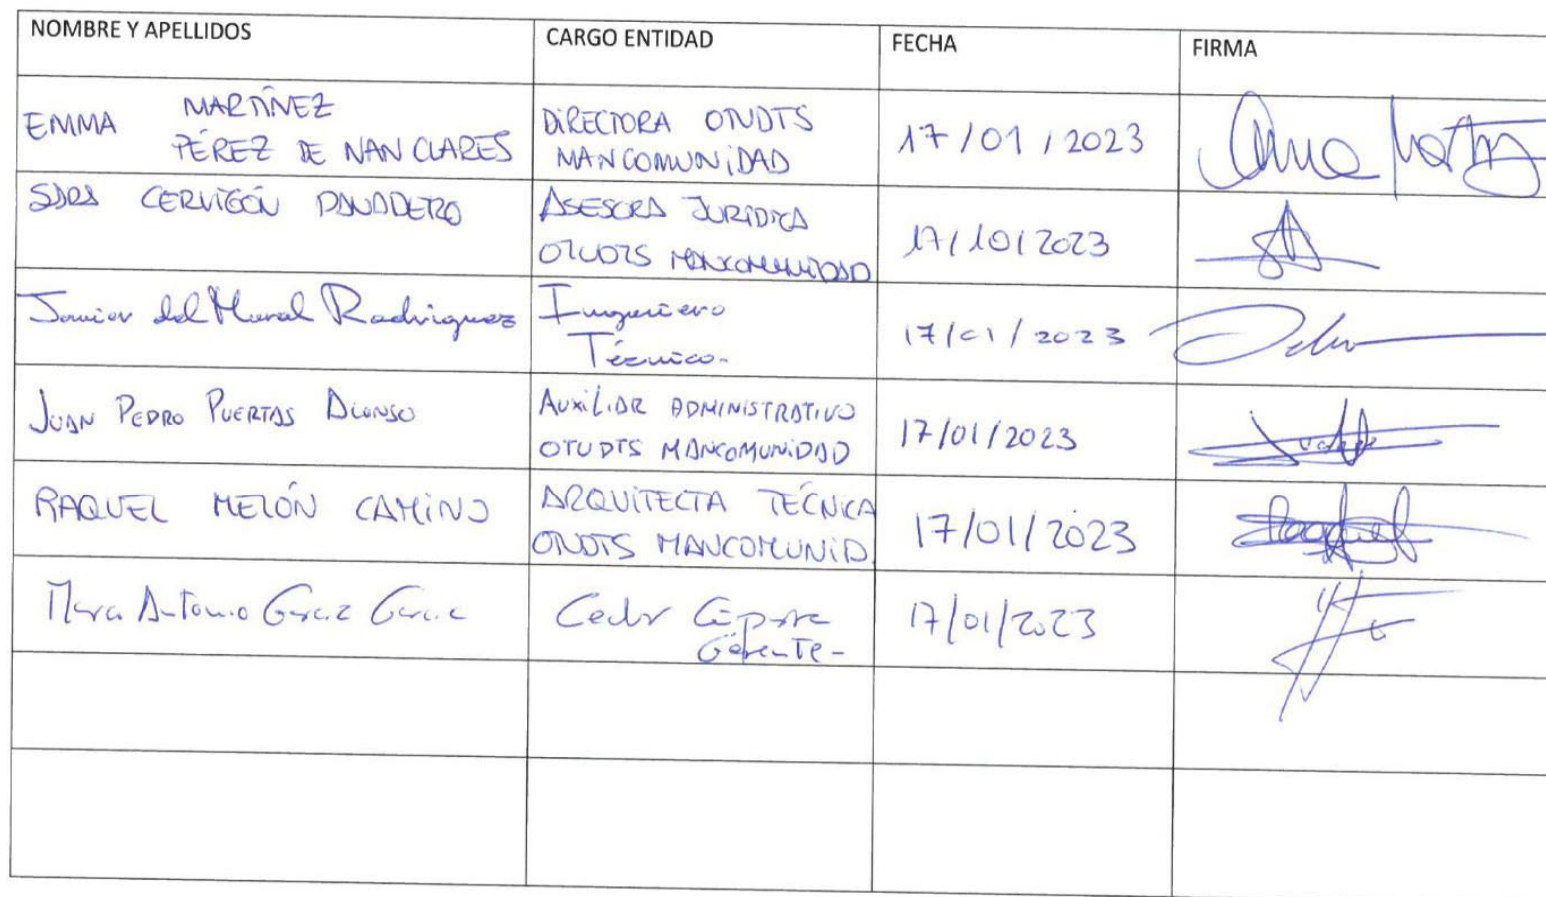 NOMBRE Y APELLIDOS CARGO ENTIDAD FECHA FIRMA
EMMA MARTÍNEZ
PÉREZ DE NANCLARES
DIRECTORA OTUDTS
MANCOMUNIDAD
17/01/2023
SARA CERVIGÓN PANADERO
ASESORA JURÍDICA
OTUDTS MANCOMUNIDAD
17/10/2023
Javier del Moral Rodriguez
Ingeniero
Técnico.
17/01/2023
JUAN PEDRO PUERTAS ALONSO
AUXILIAR ADMINISTRATIVO
OTUDTS MANCOMUNIDAD
17/01/2023
RAQUEL MELÓN CAMINO
ARQUITECTA TÉCNICA
OTUDTS MANCOMUNID.
17/01/2023
Antonio García García
Gerente-
17/01/2023